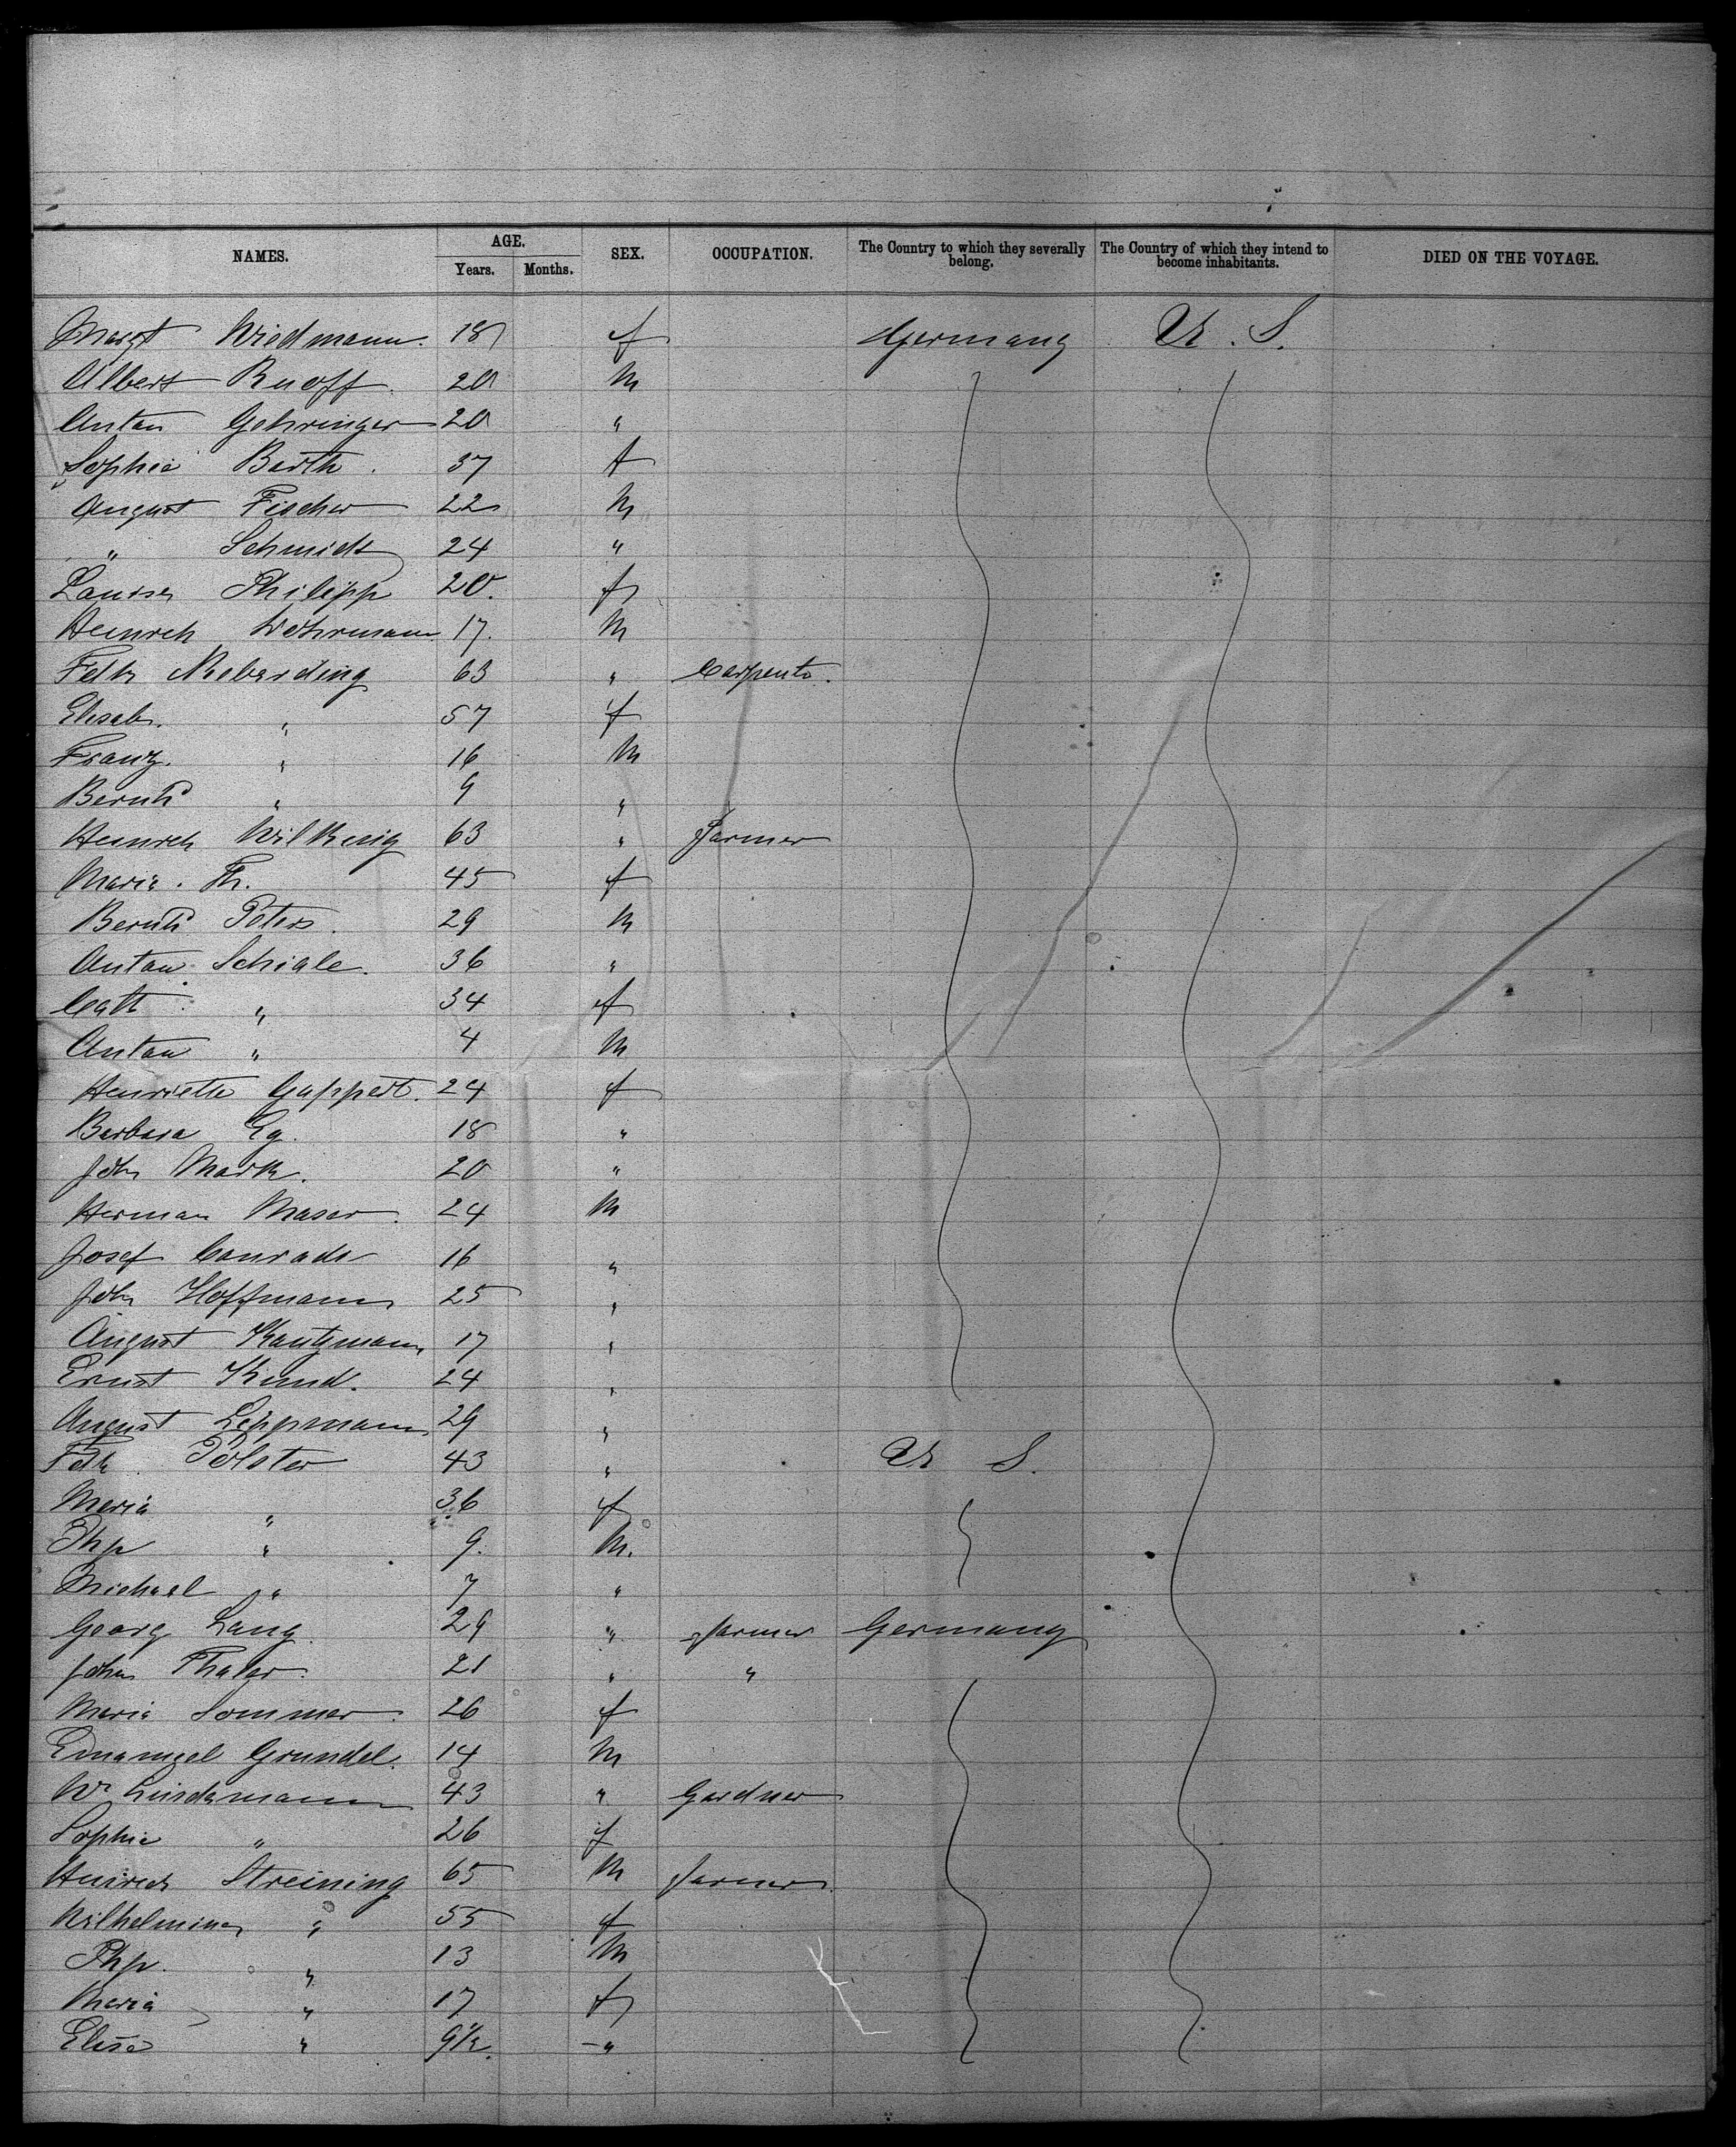 NAMES. AGE. SEX. OCCUPATION. The Country to which they severally belong. The Country of which they intend to become inhabitants. DIED ON THE VOYAGE.
Years. Months.
Margt Wiedmann. 18 f Germany U. S.
Albert Ruoff. 20 M
Anton Gehringer 20 "
Sophia Barth. 37 f
August Fischer 22 M
" Schmidt 24 "
Louise Philipp 20. f
Heinrch Wehrmann 17. M
Fdk Nieberding 63 " Carpentr.
Elisab. " 57 f
Franz. " 16 M
Bernhd " 9 "
Heinrch Wilking 63 " Farmer
Maria. Th. 45 f
Bernhd Peters. 29 M
Anton Schiale. 36 "
Cath. " 34 f
Anton " 4 M
Henriette Guppert. 24 f
Barbara Eg. 18 "
Joh Mark. 20 "
Herman Maser. 24 M
Josef Conrade 16 "
Joh Hoffmann 25 "
August Kautzmann 17 "
Ernst Kind. 24 "
August Lippmann 29 "
Fdk. Polster 43 " U S.
Maria " 36 f
Php " 9. M.
Michael " 7 "
Georg Lang. 29 " farmer Germany
Johs Thaler. 21 " "
Maria Sommer. 26 f
Emanuel Grundel. 14 M
Wm Lindemann 43 " Gardner
Sophie " 26 f
Heinrch Streining 65 M farmer.
Wilhelmine " 55 f
Php. " 13 M
Maria " 17 f
Elise " 9½. "